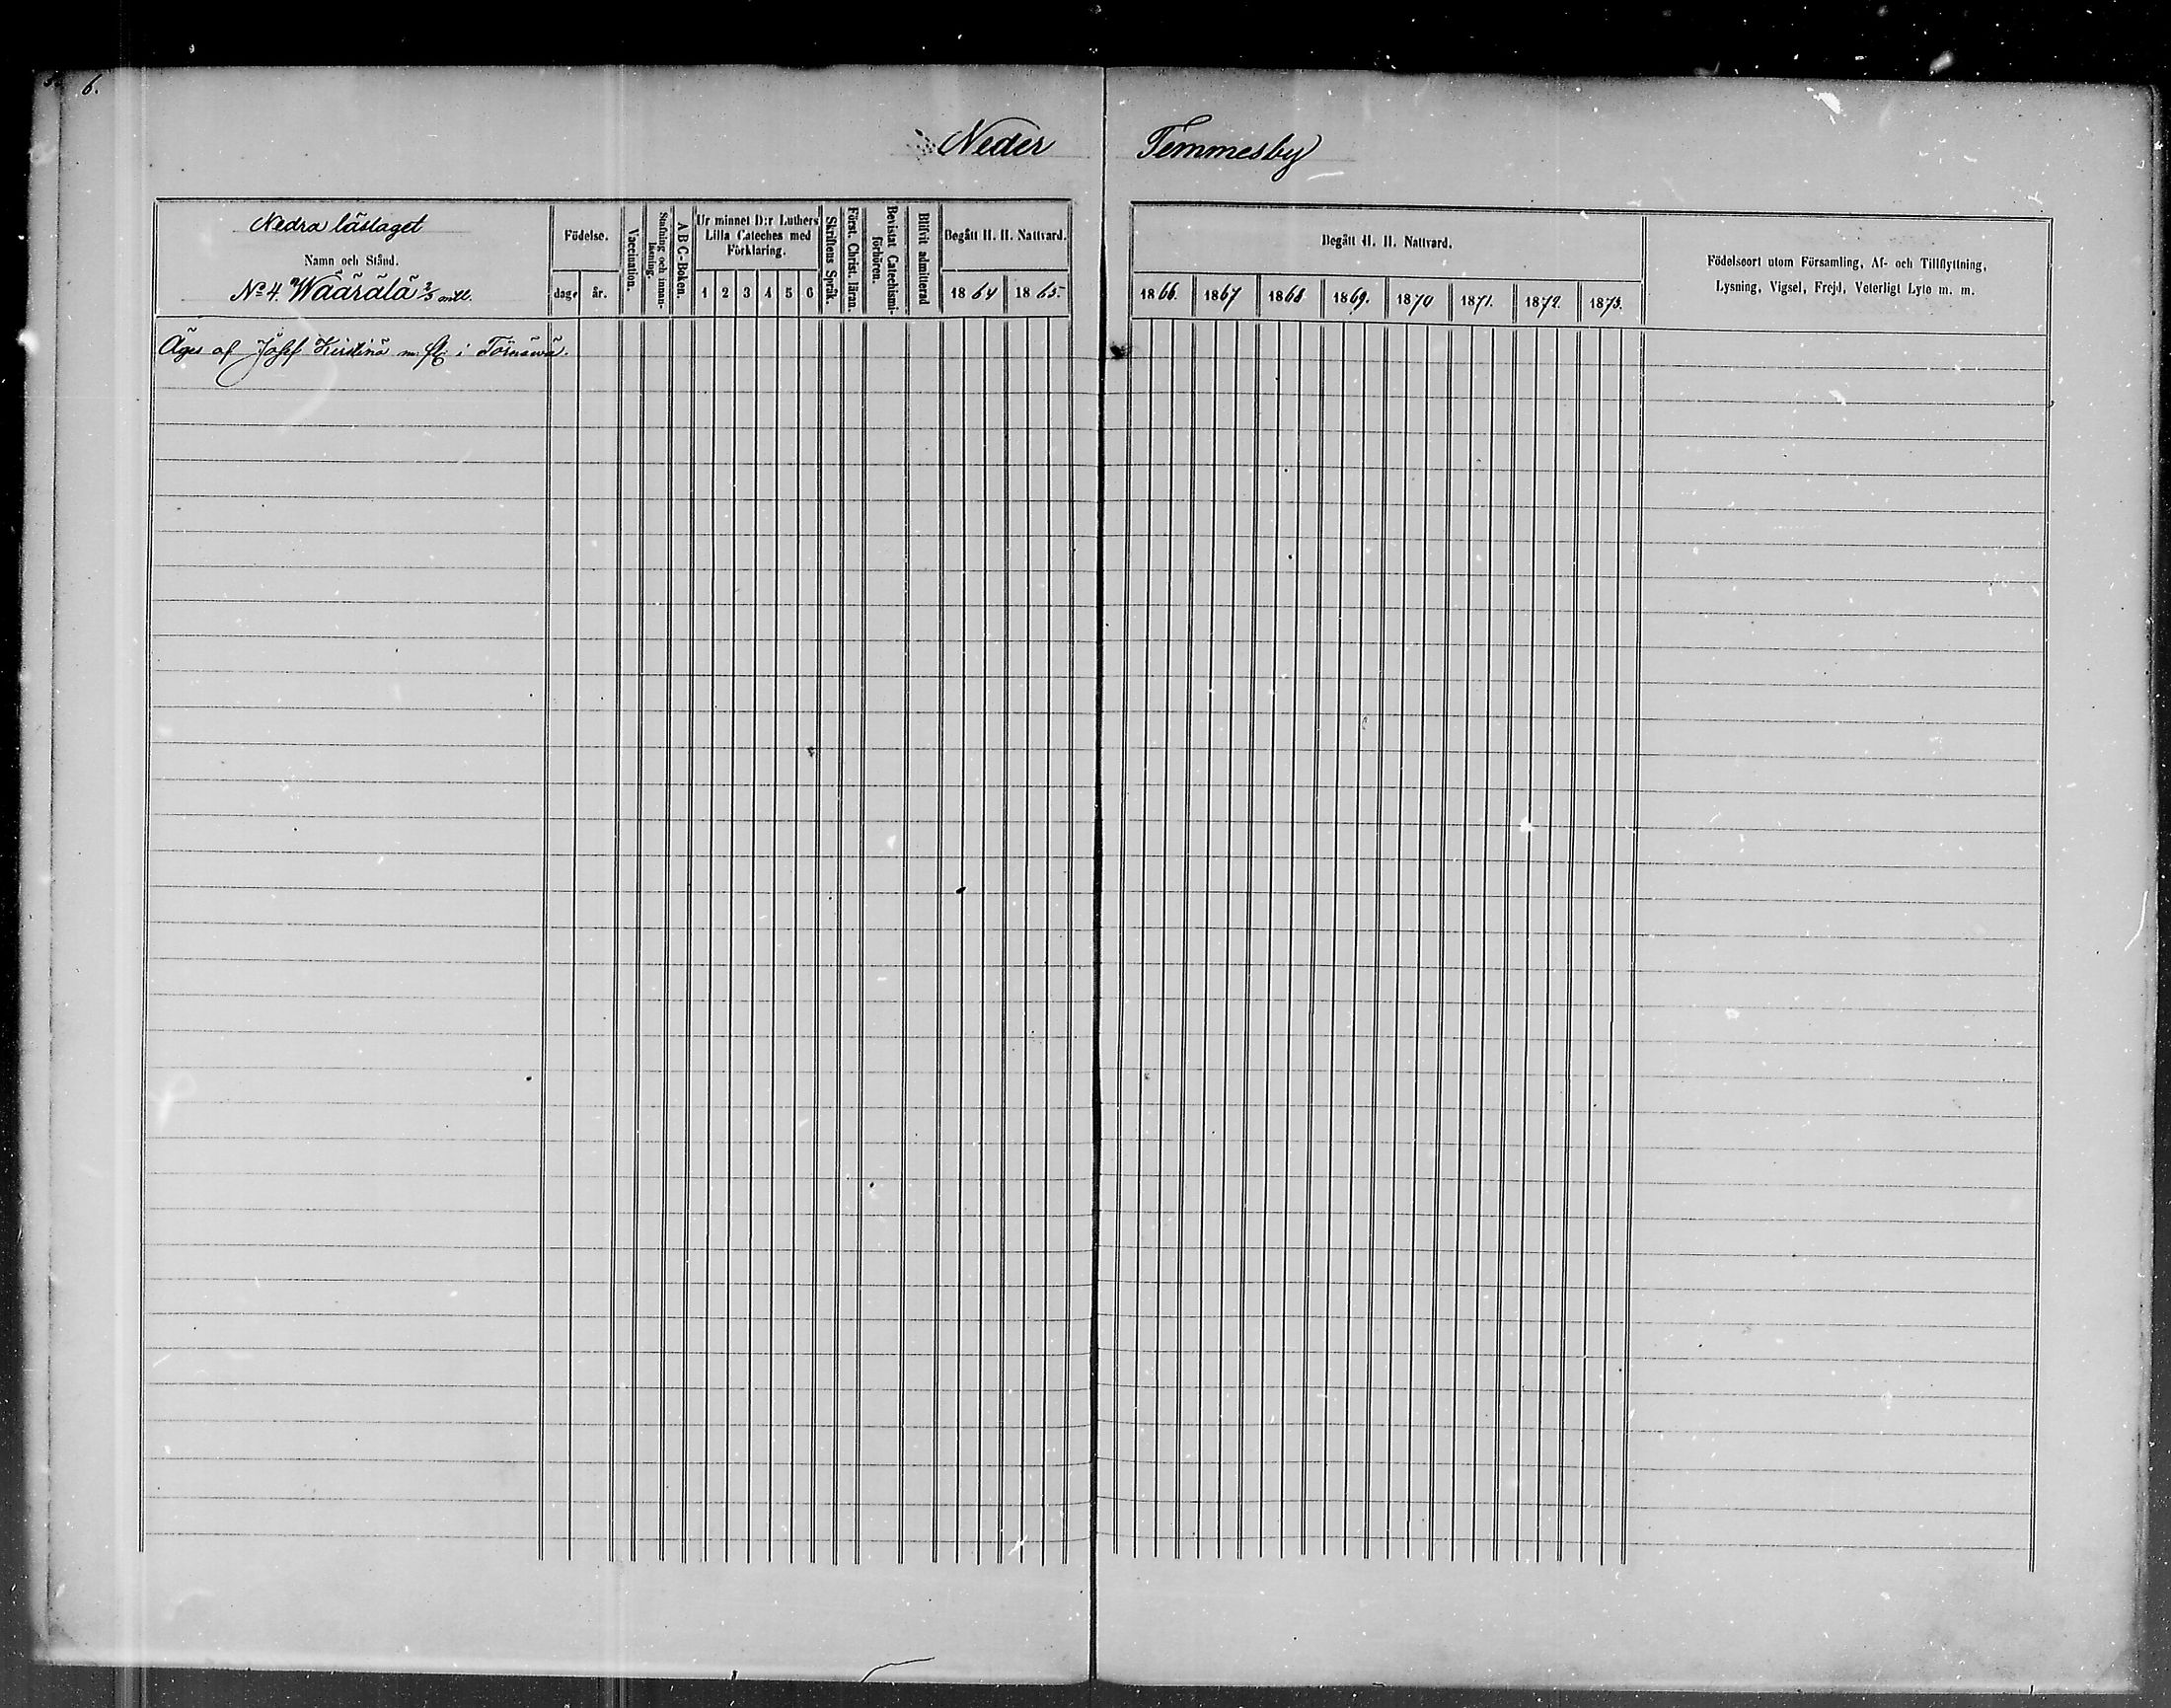 6.
Neder Temmesby
Nedra läslaget
Namn och Stånd.
No 4. Wäärälä 2/3 mtl.
Födelse.
dag.
år.
Vaccination.
Stafning och innan-
läsning.
A B C-Boken.
Ur minnet D:r Luthers
Lilla Cateches med
Förklaring.
1 2 3 4 5 6
Skriftens Språk.
Först. Christ. läran.
Bevistat Catechismi-
förhören.
Blifvit admitterad
Begått H. H. Nattvard.
1864 1865.
Begått H. H. Nattvard.
1866. 1867 1868 1869. 1870 1871. 1872. 1873.
Födelseort utom Församling, Af- och Tillflyttning,
Lysning, Vigsel, Frejd, Veterligt Lyte m. m.
Äges af Josef Kirstinä m. fl. i Törnäwä.